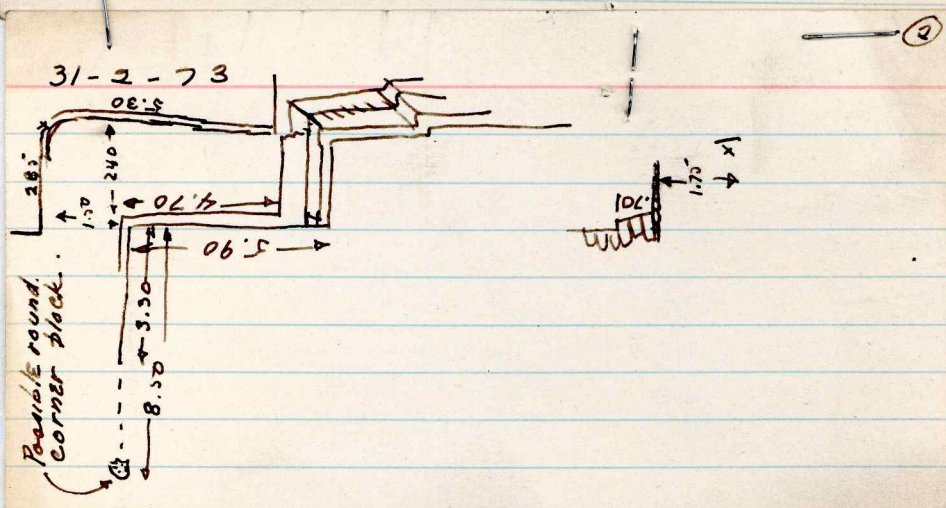 2
31-2-73
5.30
285
240
1.50
4.70
5.90
3.30
8.50
Possible round
corner block.
1.75